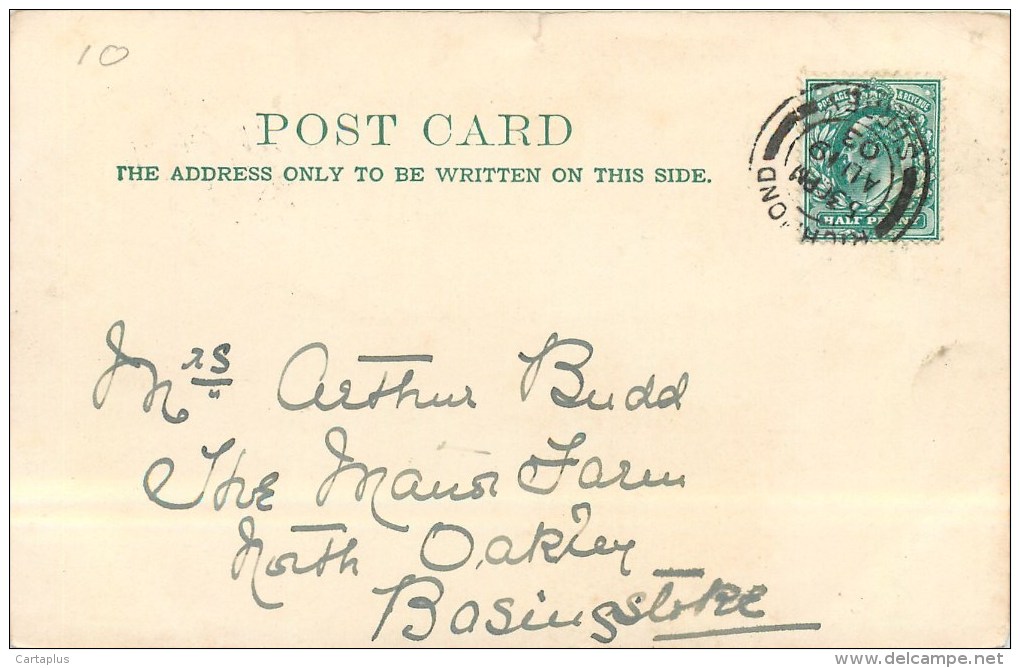 10
POST CARD
THE ADDRESS ONLY TO BE WRITTEN ON THIS SIDE.
POSTAGE & REVENUE
HALF PENNY
3 PM
AU 10
03
Mrs Arthur Budd
The Manor Farm
North Oakley
Basingstoke
Cartaplus
www.delcampe.net